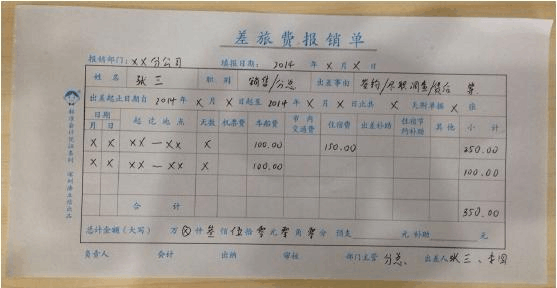 差旅费报销单
报销部门：XX分公司 填报日期：2014 年 X 月 X 日
姓名 张三 职别 销售/分总 出差事由 签约/尽职调查/贷后 等
出差起止日期自 2014年 X 月 X 日起至 2014 年 X 月 X 日止共 X 天附单据 X 张
日期 起讫地点 天数 机票费 车船费 市内交通费 住宿费 出差补助 住宿节约补助 其他 小计
月 日
X X XX—XX X 100.00 150.00 250.00
X X XX—XX X 100.00 100.00
合计 350.00
总计金额（大写） 万 仟 叁 佰 伍 拾 零 元 零 角 零 分 预支 元 补助 元
负责人 会计 出纳 审核 部门主管 分总 出差人 张三、李四
标准会计凭证系列